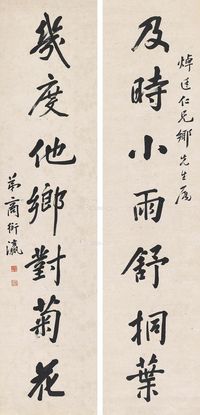 焯廷仁兄鄉先生屬
及時小雨舒桐葉
幾度他鄉對菊花
弟商衍瀛